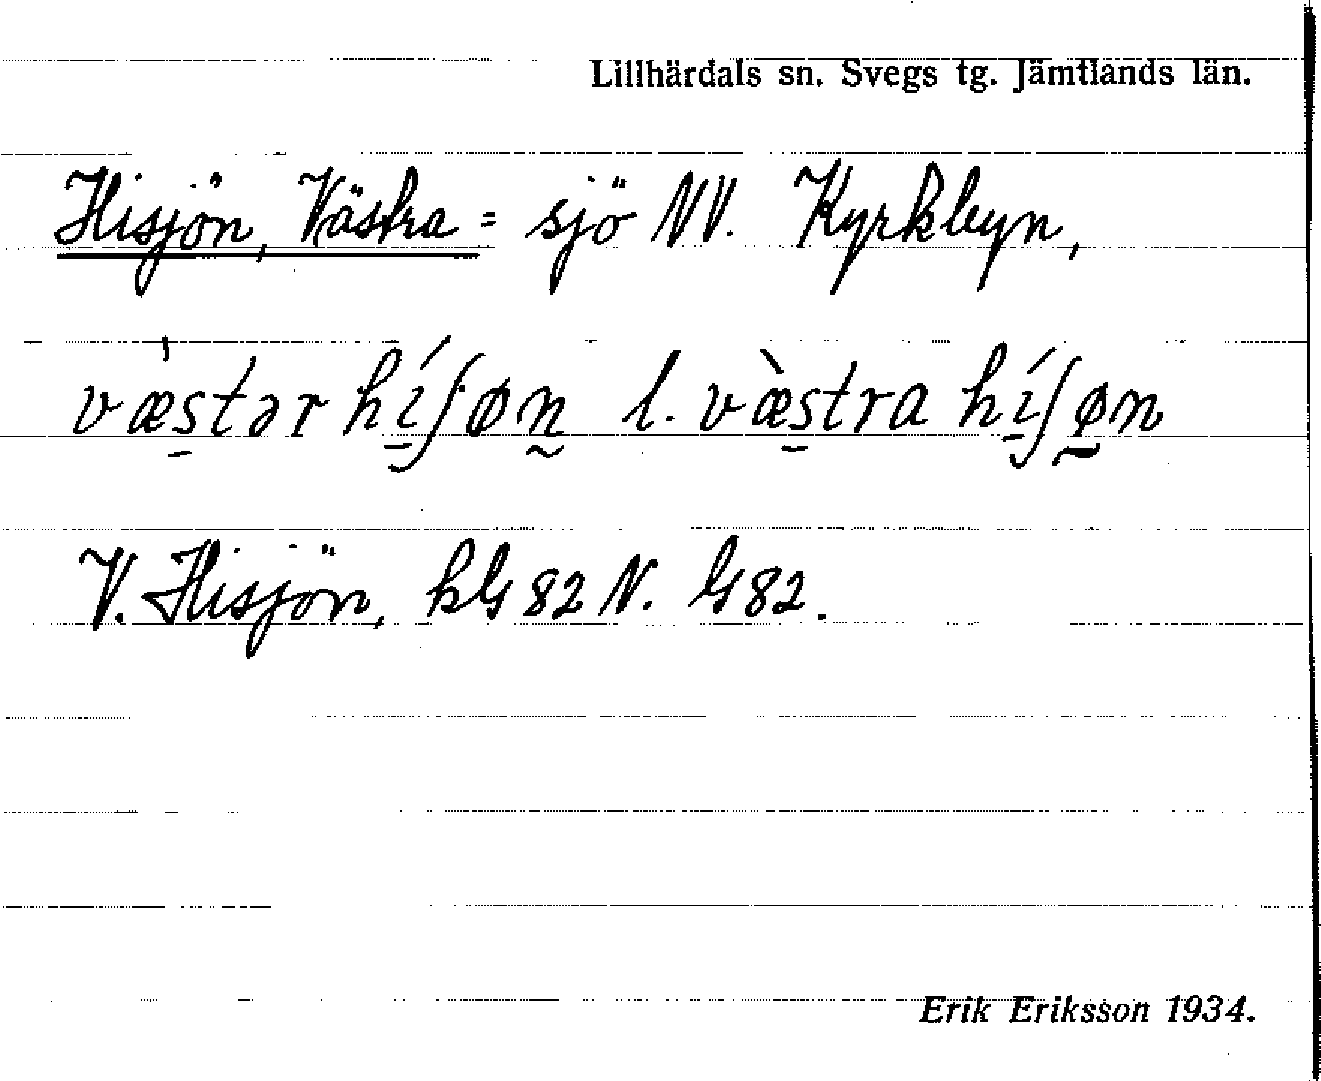 Lillhärdals sn. Svegs tg. Jämtlands län.
Hisjön, Västra = sjö NV. Kyrkbyn,
væ̀stər híʃøn l. væ̀stra híʃøn
V. Hisjön, kG 82 N. G 82.
Erik Eriksson 1934.